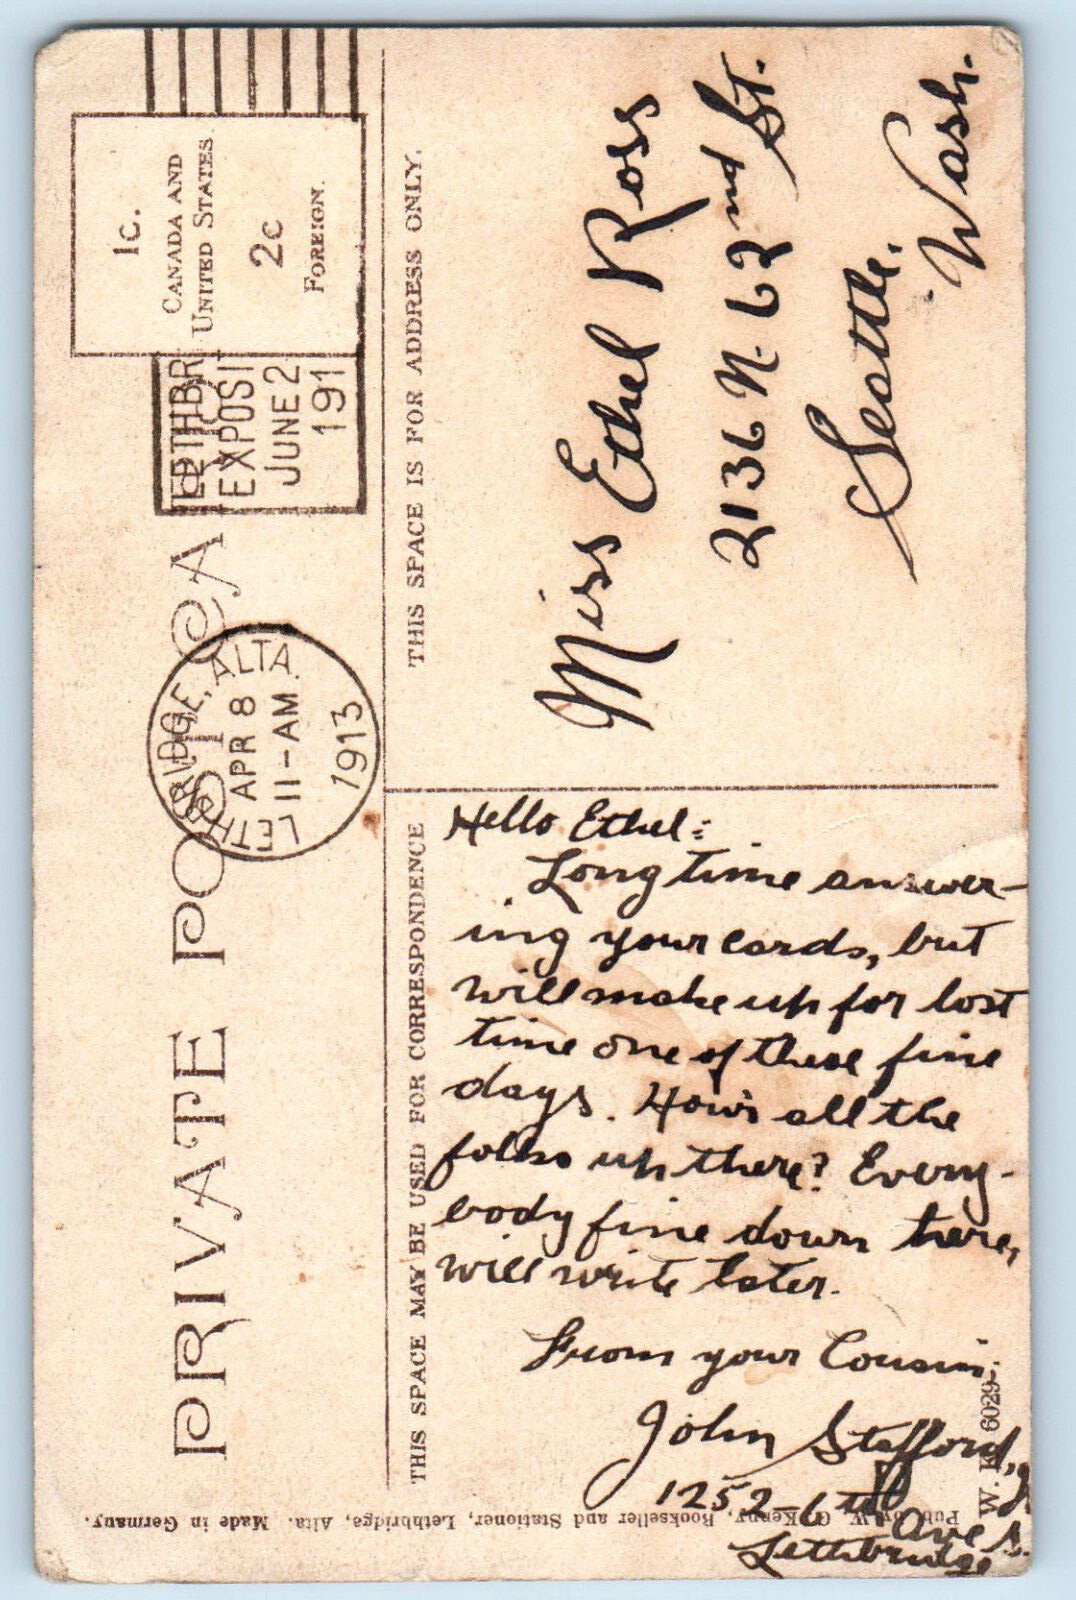 PRIVATE POST CA
1c.
CANADA AND
UNITED STATES
2c
FOREIGN.
LETHBRIDGE, ALTA
APR 8
11-AM.
1913
LETHBR
EXPOSI
JUNE 2
191
THIS SPACE MAY BE USED FOR CORRESPONDENCE
THIS SPACE IS FOR ADDRESS ONLY.
Hello Ethel:
Long time answer-
ing your cards, but
will make up for lost
time one of these fine
days. How's all the
folks up there? Every-
body fine down here,
will write later.
From your Cousin,
John Stafford,
1252-6th
Ave S.
Lethbridge
Miss Ethel Ross
2136 N. 62nd St.
Seattle.
Wash.
Pub. by W. G. Kenny, Bookseller and Stationer, Lethbridge, Alta. Made in Germany.
W. K. 6029